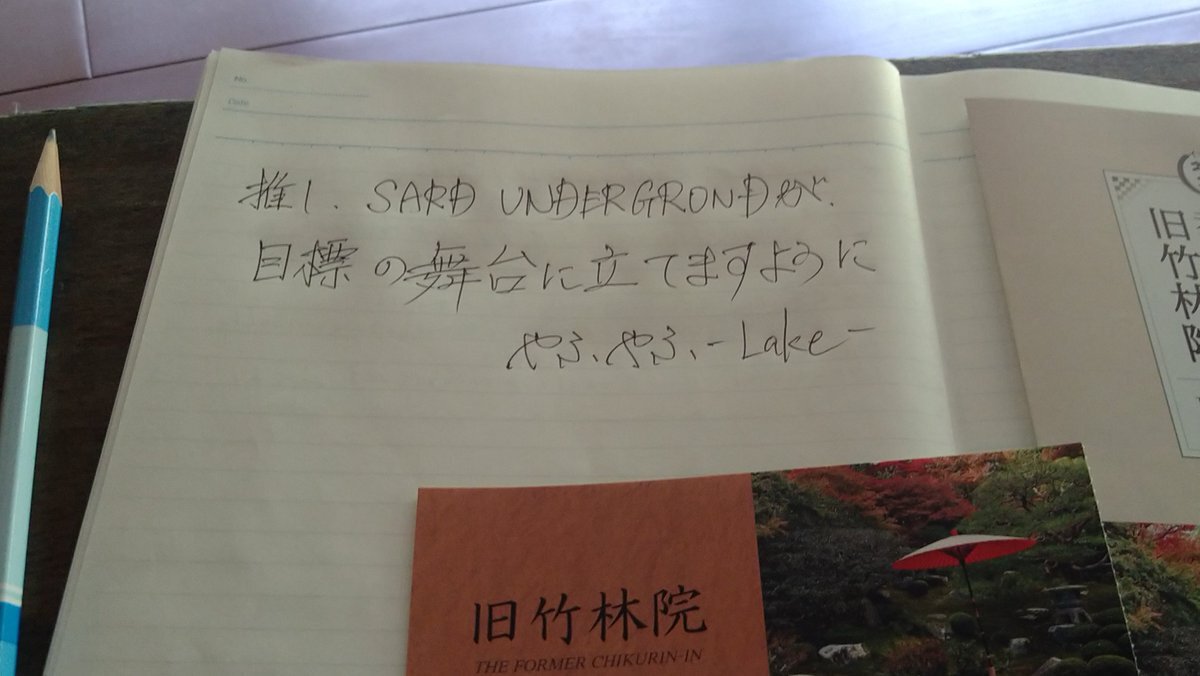 No.
Date
推し、SARD UNDERGRONDが、
目標の舞台に立てますように
やふ、やふ、-Lake-
旧竹林院
旧竹林院
THE FORMER CHIKURIN-IN